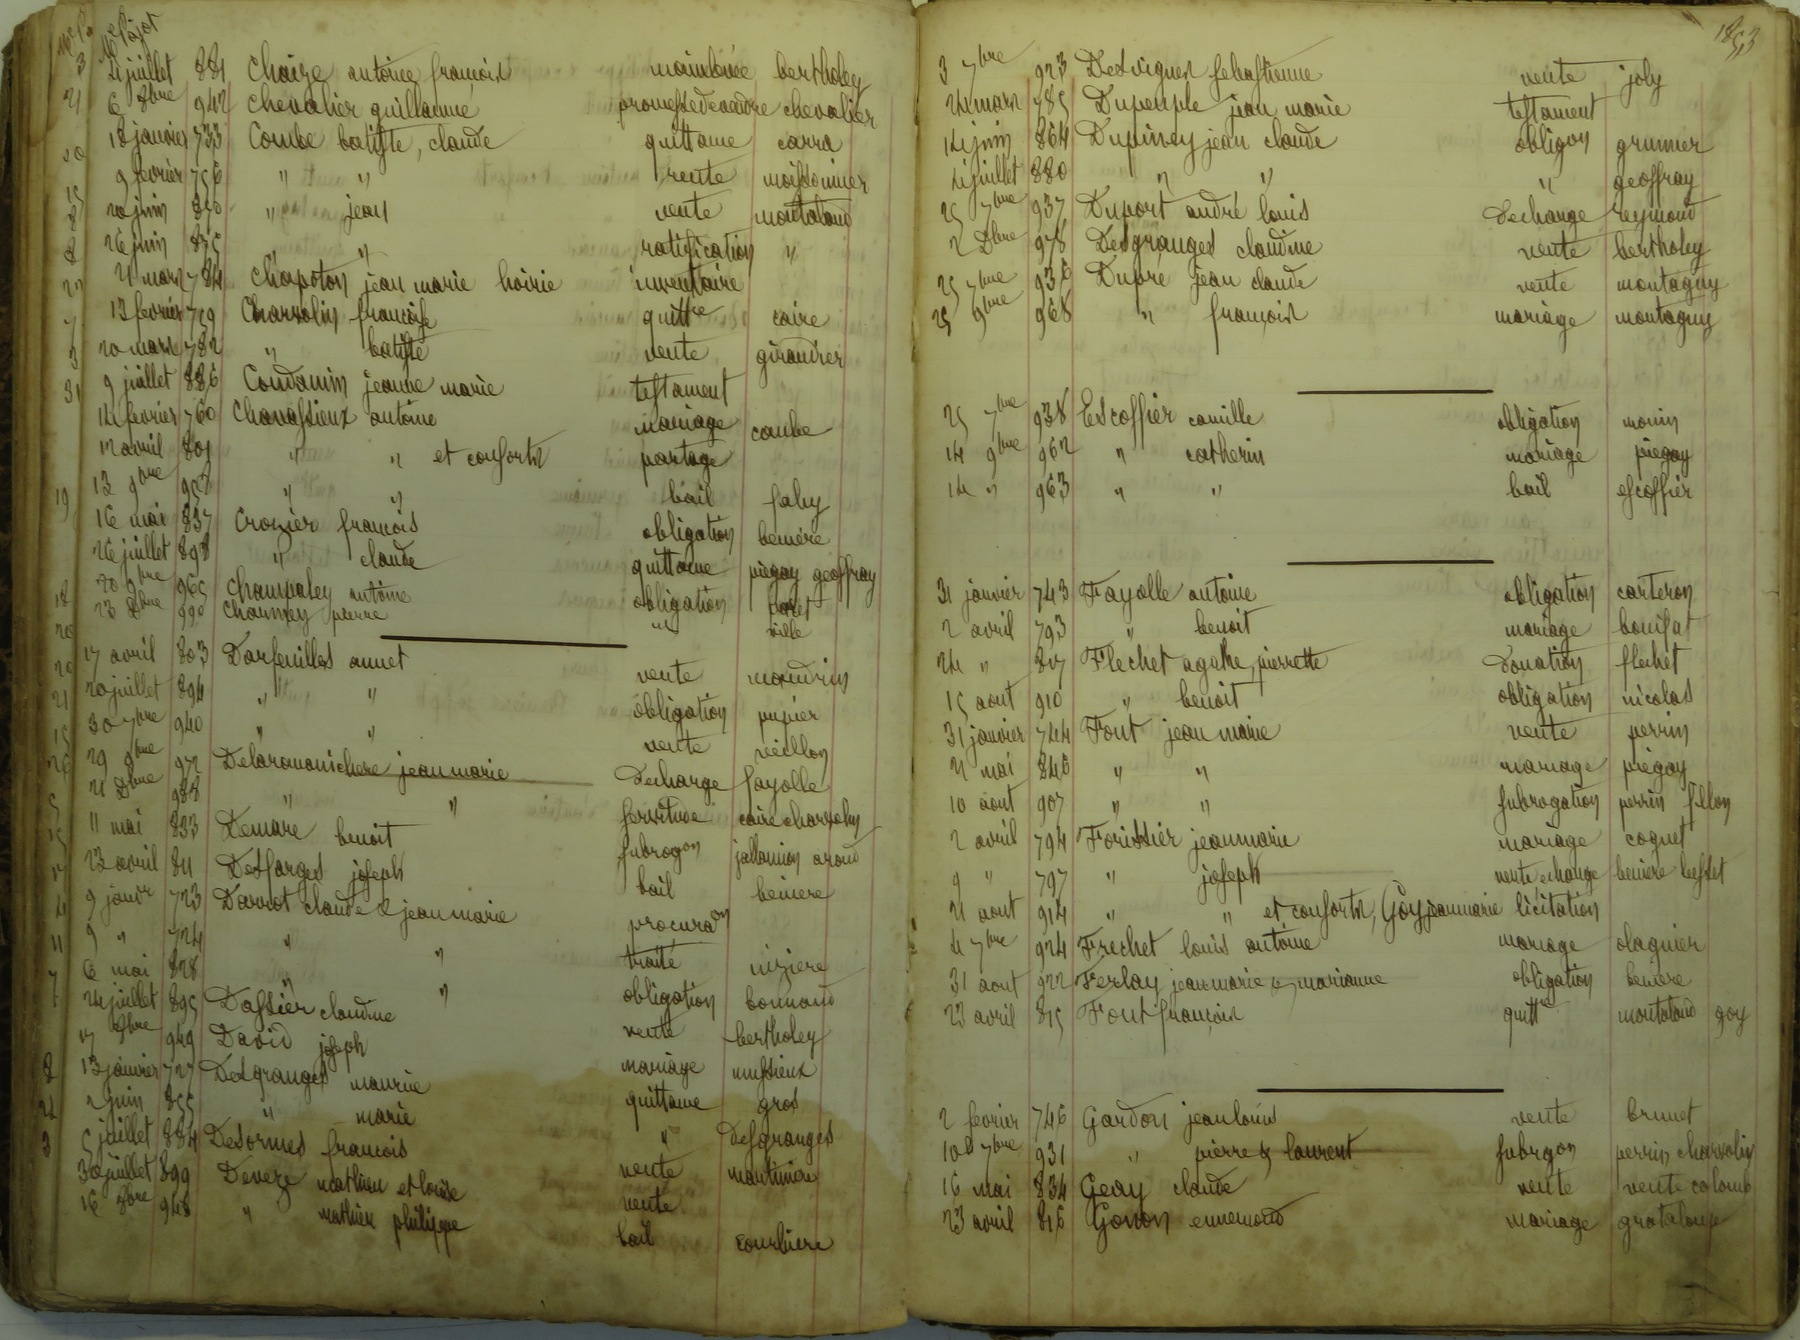 Me Pajot
4 juillet 881 Chaize antoine françois mainlevée bertholey
6 8bre 942 chevalier guillaume promesse de vendre chevalier
18 janvier 733 Combe batiste, claude quittance carra
9 fevrier 756 " " vente moissonnier
20 juin 870 " jean vente montaland
26 juin 875 " ratification "
21 mars 784 Chapoton jean marie hoirie inventaire
13 fevrier 759 Charvolin françoise quittce caire
20 mars 782 " batiste vente giraudier
9 juillet 886 Condamin jeanne marie testament
14 fevrier 760 Chavassieux antoine mariage combe
12 avril 801 " " et consorts partage
13 9bre 957 " " bail faby
16 mai 837 Crozier françois obligation beniere
26 juillet 898 " claude quittance piegay geoffray
20 9bre 965 Champaley antoine obligation
23 Dbre 990 Charmey pierre " ville
17 avril 803 Darfeuilles annet vente mandrin
20 juillet 894 " " obligation pupier
30 7bre 940 " " vente veillon
29 9bre 972 Delaromanichere jean marie decharge fayolle
21 Dbre 988 " " servitude caire charvolin
11 mai 833 Demare benoit subrogon jallamion aroud
23 avril 811 Desfarges joseph bail beniere
9 janvr 723 Darnot claude & jean marie procuraon
9 " 724 " " traité niziere
6 mai 828 " " obligation bonnand
24 juillet 895 Dassier claudine vente bertholey
17 8bre 949 David joseph mariage mussieux
13 janvier 727 Desgranges maurice quittance gros
2 juin 855 " marie " desgranges
5 juillet 884 Desormes francois vente martiniere
30 juillet 899 Deveze mathieu et louise vente
16 8bre 948 " mathieu philippe bail courbiere
1853
3 7bre 923 Desvignes sebastienne vente joly
24 mars 785 Dupeuple jean marie testament
14 juin 864 Dupiney jean claude obligon grumier
4 juillet 880 " " " geoffray
25 7bre 937 Duport andré louis decharge reymond
2 Dbre 978 Desgranges claudine vente bertholey
25 7bre 936 Dupré jean claude vente montagny
25 9bre 968 " françois mariage montagny
25 7bre 938 Escoffier camille obligation monin
14 9bre 962 " catherin mariage piegay
14 " 963 " " bail escoffier
31 janvier 743 Fayolle antoine obligation carteron
2 avril 793 " benoit mariage bonifat
24 " 817 Flechet agathe, pierrette donation flechet
15 aout 910 " benoit obligation nicolas
31 janvier 744 Font jean marie vente perrin
21 mai 846 " " mariage piegay
10 aout 907 " " subrogation perrin fillon
2 avril 794 Forissier jean marie mariage coquet
9 " 797 " joseph vente echange beniere
21 aout 914 " " et consorts, Goy jeanmarie licitation
4 7bre 924 Frechet louis antoine mariage olagnier
31 aout 922 Ferlay jean marie & marianne obligation beniere
23 avril 815 Font françois quitt montaland goy
2 fevrier 746 Gardon jean louis vente brunet
10 7bre 931 " pierre & laurent subrgon perrin charvolin
16 mai 834 Geay claude vente vente colomb
23 avril 816 Gonon ennemond mariage grataloup